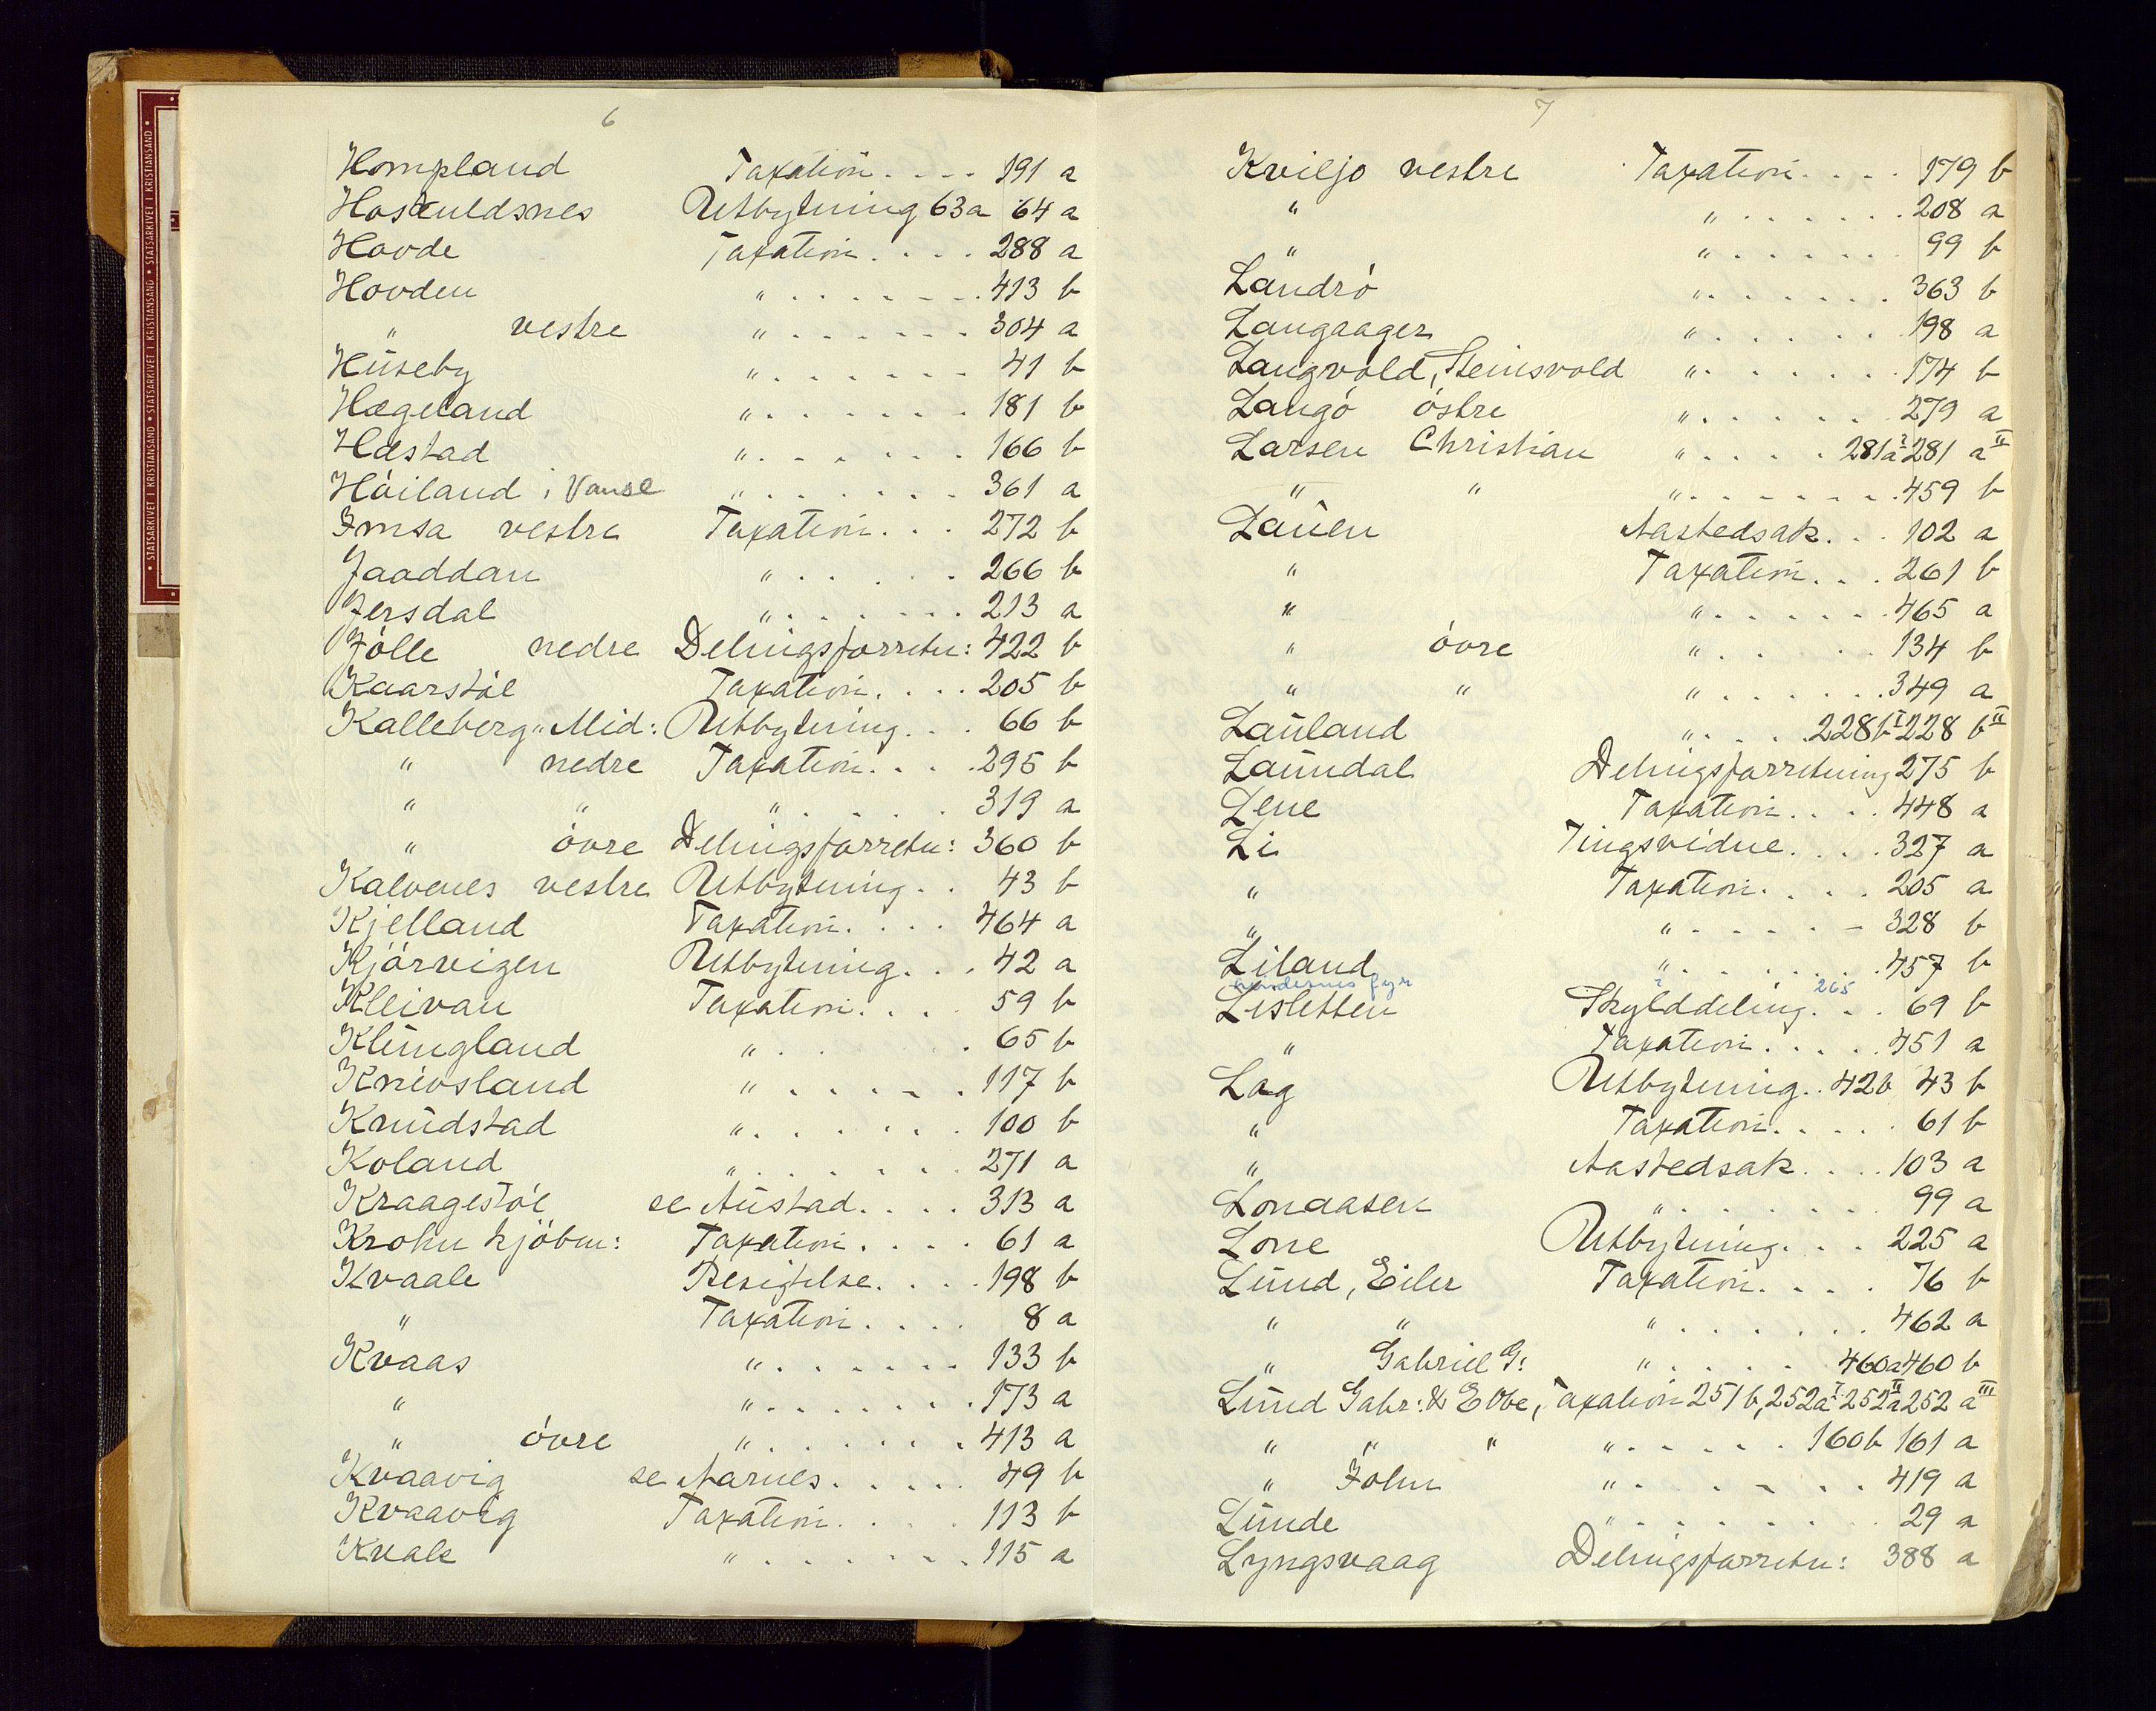 STATSARKIVET I KRISTIANSAND • STATSARKIVET I KRISTIANSAND • STATSARKIVET I KRISTIANSAND •
6
Hompland Taxation.... 191 a
Hosculdsnes Utbytning 63a 64 a
Hovde Taxation.... 288 a
Hovden "....... 413 b
" vestre "...... 304 a
Huseby "...... 41 b
Hægeland "...... 181 b
Hæstad "...... 166 b
Høiland i Vanse "...... 361 a
Imsa vestre Taxation... 272 b
Jaaddan "..... 266 b
Jersdal "...... 213 a
Jölle nedre Delingsforretn: 422 b
Kaarstöl Taxation.... 205 b
Kalleberg " Mid: Utbytning... 66 b
" nedre Taxation.... 295 b
" " "..... 319 a
" övre Delingsforretn: 360 b
Kalvenes vestre Utbytning.. 43 b
Kjelland Taxation.... 464 a
Kjörvigen Utbytning... 42 a
Kleivan Taxation.... 59 b
Klungland "..... 65 b
Knivsland "..... 117 b
Knudstad "...... 100 b
Koland "...... 271 a
Kraagestöl se Austad.... 313 a
Krohn kjöbm: Taxation.... 61 a
Kvaale Besigtelse.... 198 b
" Taxation.... 8 a
Kvaas "...... 133 b
" "....... 173 a
" övre "...... 413 a
Kvaavig se Aarnes..... 49 b
Kvaavig Taxation.... 113 b
Kvale "...... 115 a
7
Kviljo vestre Taxation.... 179 b
" "...... 208 a
" "...... 99 b
Landrö "...... 363 b
Langaager "...... 198 a
Langvold, Steinsvold "...... 174 b
Langö östre "..... 279 a
Larsen Christian ".... 281a I 281 a II
" " "....... 459 b
Lauen Aastedsak... 102 a
" Taxation... 261 b
" "...... 465 a
" övre "..... 134 b
" " "...... 349 a
Lauland ".... 228 b I 228 b II
Laundal Delingsforretning 275 b
Lene Taxation.... 448 a
Li Tingsvidne.... 327 a
" Taxation.... 205 a
" "..... 328 b
Liland "...... 457 b
fyr ? 265
Lisletten Skylddeling... 69 b
" Taxation..... 451 a
Lag Utbytning.. 42b 43 b
" Taxation..... 61 b
" Aastedsak.... 103 a
Lonaasen "...... 99 a
Lone Utbytning... 225 a
Lund, Eiler Taxation.... 76 b
" " "...... 462 a
" Gabriel G: "..... 460a 460 b
Lund Gabr: & E Obe, Taxation 251 b, 252a I 252a II 252 a III
" " " "..... 160b 161 a
" John "..... 419 a
Lunde "...... 29 a
Lyngsvaag Delingsforretn: 388 a